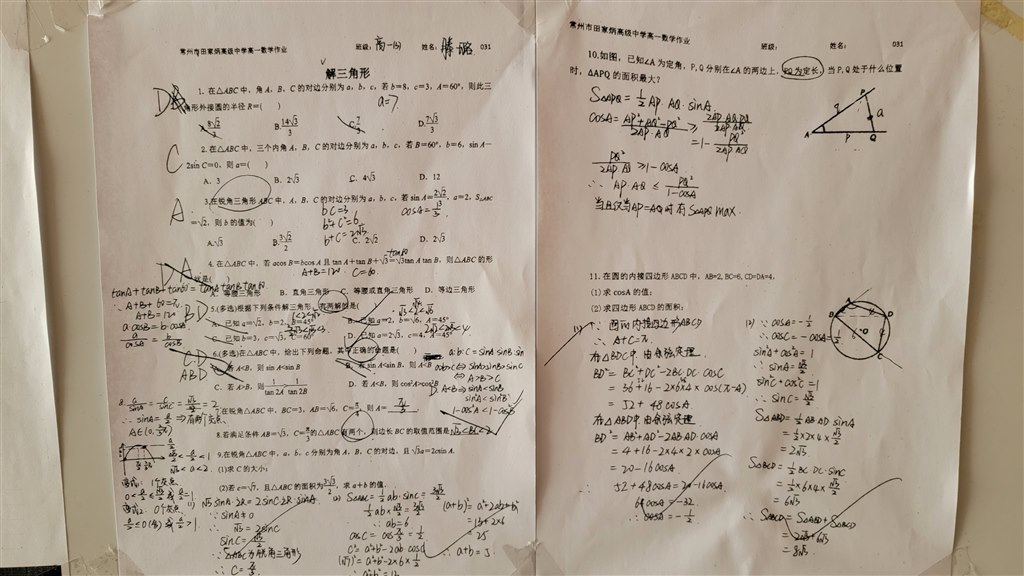 常州市田家炳高级中学高一数学作业 班级: 高一(5) 姓名: 滕璐 031
解三角形
1. 在△ABC 中，角 A、B、C 的对边分别为 a，b，c，若 b=8，c=3，A=60°，则此三
角形外接圆的半径 R=( )
a=7
D
A. 8√2/3 B. 14√3/3 C. 7/3 D. 7√3/3
2. 在△ABC 中，三个内角 A，B，C 的对边分别为 a，b，c，若 B=60°，b=6，sin A−
2sin C=0，则 a=( )
C
A. 3 B. 2√3 C. 4√3 D. 12
3. 在锐角三角形 ABC 中，A，B，C 的对边分别为 a，b，c，若 sin A=2√2/3，a=2，S△ABC
=√2，则 b 的值为( )
A
bC=3 cosA=1/3
b²+C²=6
b+C=2√3
A. √3 B. 3√2/2 C. 2√2 D. 2√3
4. 在△ABC 中，若 acos B=bcos A 且 tan A+tan B+√3=√3tan A tan B，则△ABC 的形
状是( )
A+B=120 C=60.
A. 等腰三角形 B. 直角三角形 C. 等腰或直角三角形 D. 等边三角形
∴A+B+C=π.
A+B=120
a cosB=b cosA
a/cosA = b/cosB
5.(多选)根据下列条件解三角形，有两解的是( )
BD
A. 已知 a=√2，b=2，A=45° B. 已知 a=2，b=√6，A=45°
C. 已知 b=3，c=√3，C=60° D. 已知 a=2√3，c=4，A=45°
6.(多选)在△ABC 中，给出下列命题，其中正确的命题是( )
ABD
A. 若 A<B，则 sin A<sin B B. 若 sin A<sin B，则 A<B
C. 若 A>B，则 1/tan 2A>1/tan 2B D. 若 A<B，则 cos²A>cos²B
a:b:c=sinA:sinB:sinC
a>b>c⇔sinA>sinB>sinC
⇔A>B>C
D. A<B⇒sinA<sinB
sin²A<sin²B
1-cos²A<1-cos²B
7. 在锐角△ABC 中，BC=3，AB=√6，C=π/4，则 A=
8. 若满足条件 AB=√3，C=π/3 的△ABC 有两个，则边长 BC 的取值范围是 √3<BC<2
8. a/sinA = c/sinC
∴sinA=a/2⇒有两个交点.
√3<a<2
9. 在锐角△ABC 中，a，b，c 分别为角 A，B，C 的对边，且 √3a=2csin A.
(1)求 C 的大小；
(2)若 c=√7，且△ABC 的面积为 3√3/2，求 a+b 的值.
√3 sinA·2R=2sinC·2R·sinA
∵sinA≠0
∴√3=2sinC
sinC=√3/2
∵△ABC为锐角三角形
∴C=π/3
S△ABC=1/2 ab·sinC=3√3/2
∴ab=6
cosC=cosπ/3=1/2
C²=a²+b²-2ab cosC
(√7)²=a²+b²-2×6×1/2
∴a²+b²=13
(a+b)²=a²+2ab+b²
=13+2×6
=25
∴a+b=5
常州市田家炳高级中学高一数学作业 班级: 姓名: 031
10. 如图，已知∠A 为定角，P，Q 分别在∠A 的两边上，PQ 为定长，当 P，Q 处于什么位置
时，△APQ 的面积最大？
S△APQ=1/2 AP·AQ·sinA
cosA=(AP²+AQ²-PQ²)/(2AP·AQ) ≥
=1-PQ²/(2AP·AQ)
PQ²/(2AP·AQ)≥1-cosA
∴AP·AQ≤PQ²/(1-cosA)
当且仅当AP=AQ时有S△APQ max.
A P Q a q p
11. 在圆的内接四边形 ABCD 中，AB=2，BC=6，CD=DA=4，
(1) 求 cosA 的值；
(2) 求四边形 ABCD 的面积；
(1) ∵圆的内接四边形ABCD
∴A+C=π.
在△BDC中 由余弦定理.
BD²=BC²+DC²-2BC·DC·cosC
=36+16-2×6×4×cos(π-A)
=52+48cosA
在△ABD中 由余弦定理
BD²=AB²+AD²-2AB·AD·cosA
=4+16-2×4×2×cosA
=20-16cosA
∴52+48cosA=20-16cosA
64cosA=-32
∴cosA=-1/2
(2) ∵cosA=-1/2
∴cosC=-cosA=1/2
sin²A+cos²A=1
∴sinA=√3/2
sin²C+cos²C=1
∴sinC=√3/2
S△ABD=1/2 AB·AD·sinA
=1/2×2×4×√3/2
=2√3
S△BCD=1/2 BC·DC·sinC
=1/2×6×4×√3/2
=6√3
∴S ABCD=S△ABD+S△BCD
=2√3+6√3
=8√3